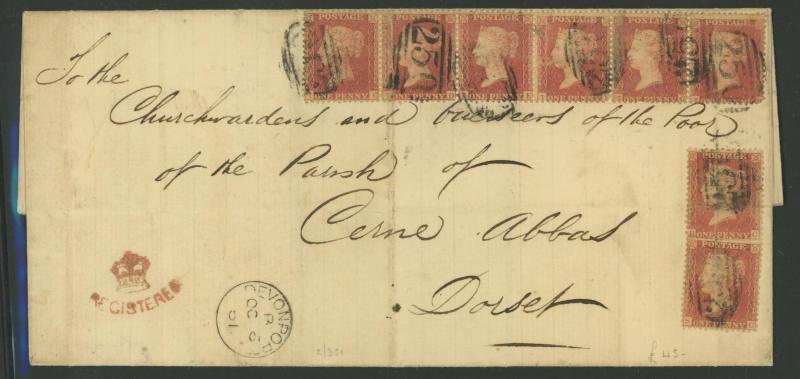 POSTAGE POSTAGE POSTAGE POSTAGE POSTAGE POSTAGE
ONE PENNY ONE PENNY ONE PENNY ONE PENNY ONE PENNY ONE PENNY
250 250
To the
Churchwardens and Overseers of the Poor
of the Parish of
Cerne Abbas
Dorset
POSTAGE
ONE PENNY
POSTAGE
ONE PENNY
REGISTERED
DEVONPORT
R
OC
£45-